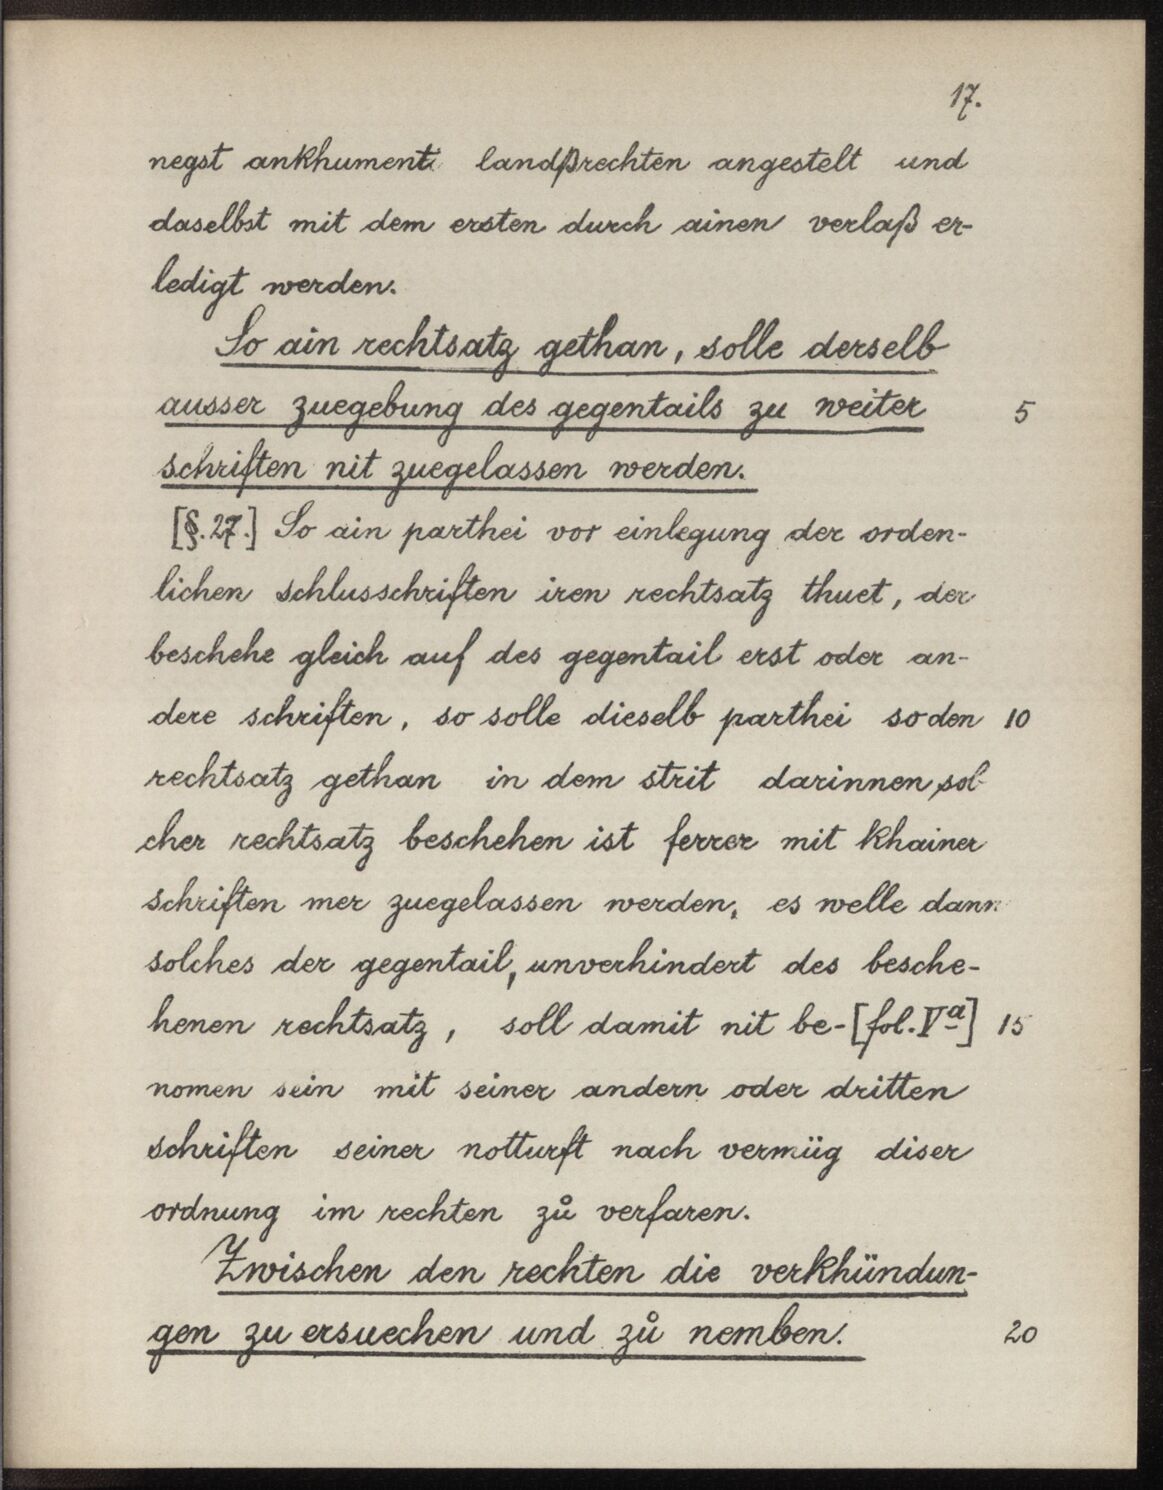 17.
negst ankhument landßrechten angestelt und
daselbst mit dem ersten durch ainen verlaß er-
ledigt werden.
So ain rechtsatz gethan, solle derselb
ausser zuegebung des gegentails zu weiter 5
schriften nit zuegelassen werden.
[§.27.] So ain parthei vor einlegung der orden-
lichen schlusschriften iren rechtsatz thuet, der
beschehe gleich auf des gegentail erst oder an-
dere schriften, so solle dieselb parthei so den 10
rechtsatz gethan in dem strit darinnen sol-
cher rechtsatz beschehen ist ferrer mit khainer
schriften mer zuegelassen werden, es welle dann
solches der gegentail, unverhindert des besche-
henen rechtsatz, soll damit nit be-[fol.Vª] 15
nomen sein mit seiner andern oder dritten
schriften seiner notturft nach vermüg diser
ordnung im rechten zů verfaren.
Zwischen den rechten die verkhündun-
gen zu ersuechen und zů nemben. 20